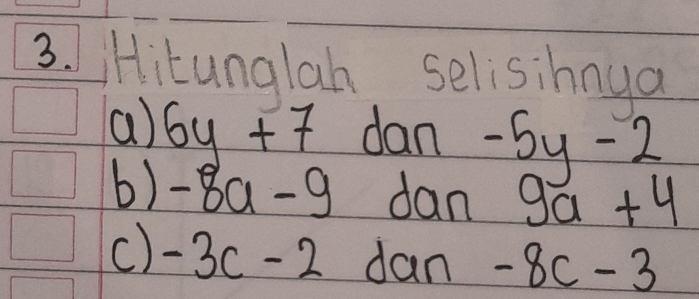 3. Hitunglah selisihnya
a) 6y + 7 dan -5y - 2
b) -8a - 9 dan 9a + 4
c) -3c - 2 dan -8c - 3